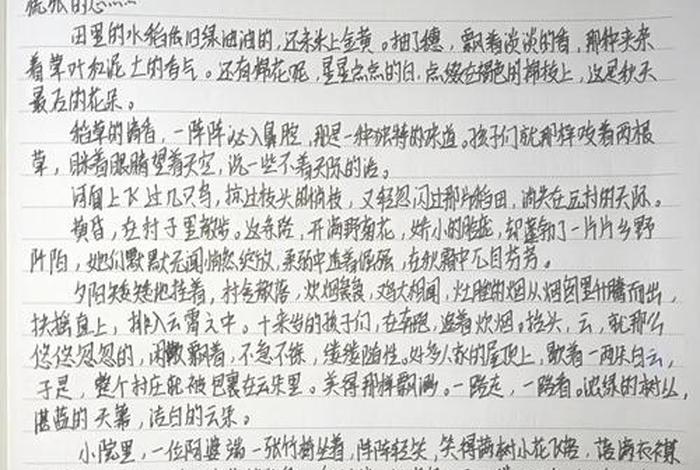 田里的水稻依旧绿油油的，还未染上金黄。抽了穗，飘着淡淡的香，那种夹杂
着草叶和泥土的香气。还有棉花呢，星星点点的白，点缀在褐色的棉枝上，这是秋天
最后的花朵。
稻草的清香，一阵阵沁入鼻腔，那是一种独特的味道。孩子们就那样咬着两根
草，眯着眼睛望着天空，说一些不着天际的话。
河面上飞过几只鸟，掠过枝头的俏枝，又轻忽闪过那片稻田，消失在远村的天际。
黄昏，在村子里散步。这条路，开满野菊花，娇小的脸庞，却蓬勃了一片片乡野
阡陌，她们默默无闻悄然绽放，柔弱中透着倔强，在秋霜中兀自芬芳。
夕阳矮矮地挂着，村舍散落，炊烟袅袅，鸡犬相闻，灶膛的烟从烟囱里升腾而出，
扶摇直上，排入云霄之中。十来岁的孩子们，在奔跑，追着炊烟。抬头，云，就那么
悠悠忽忽的，闲散飘着，不急不躁，缕缕随性。好多人家的屋顶上，歇着一两朵白云，
于是，整个村庄就被包裹在云朵里。美得那样飘渺。一路走，一路看。浓绿的树丛，
湛蓝的天幕，洁白的云朵。
小院里，一位阿婆端一张竹椅坐着，阵阵轻笑，笑得满树小花飞轻，落满衣襟